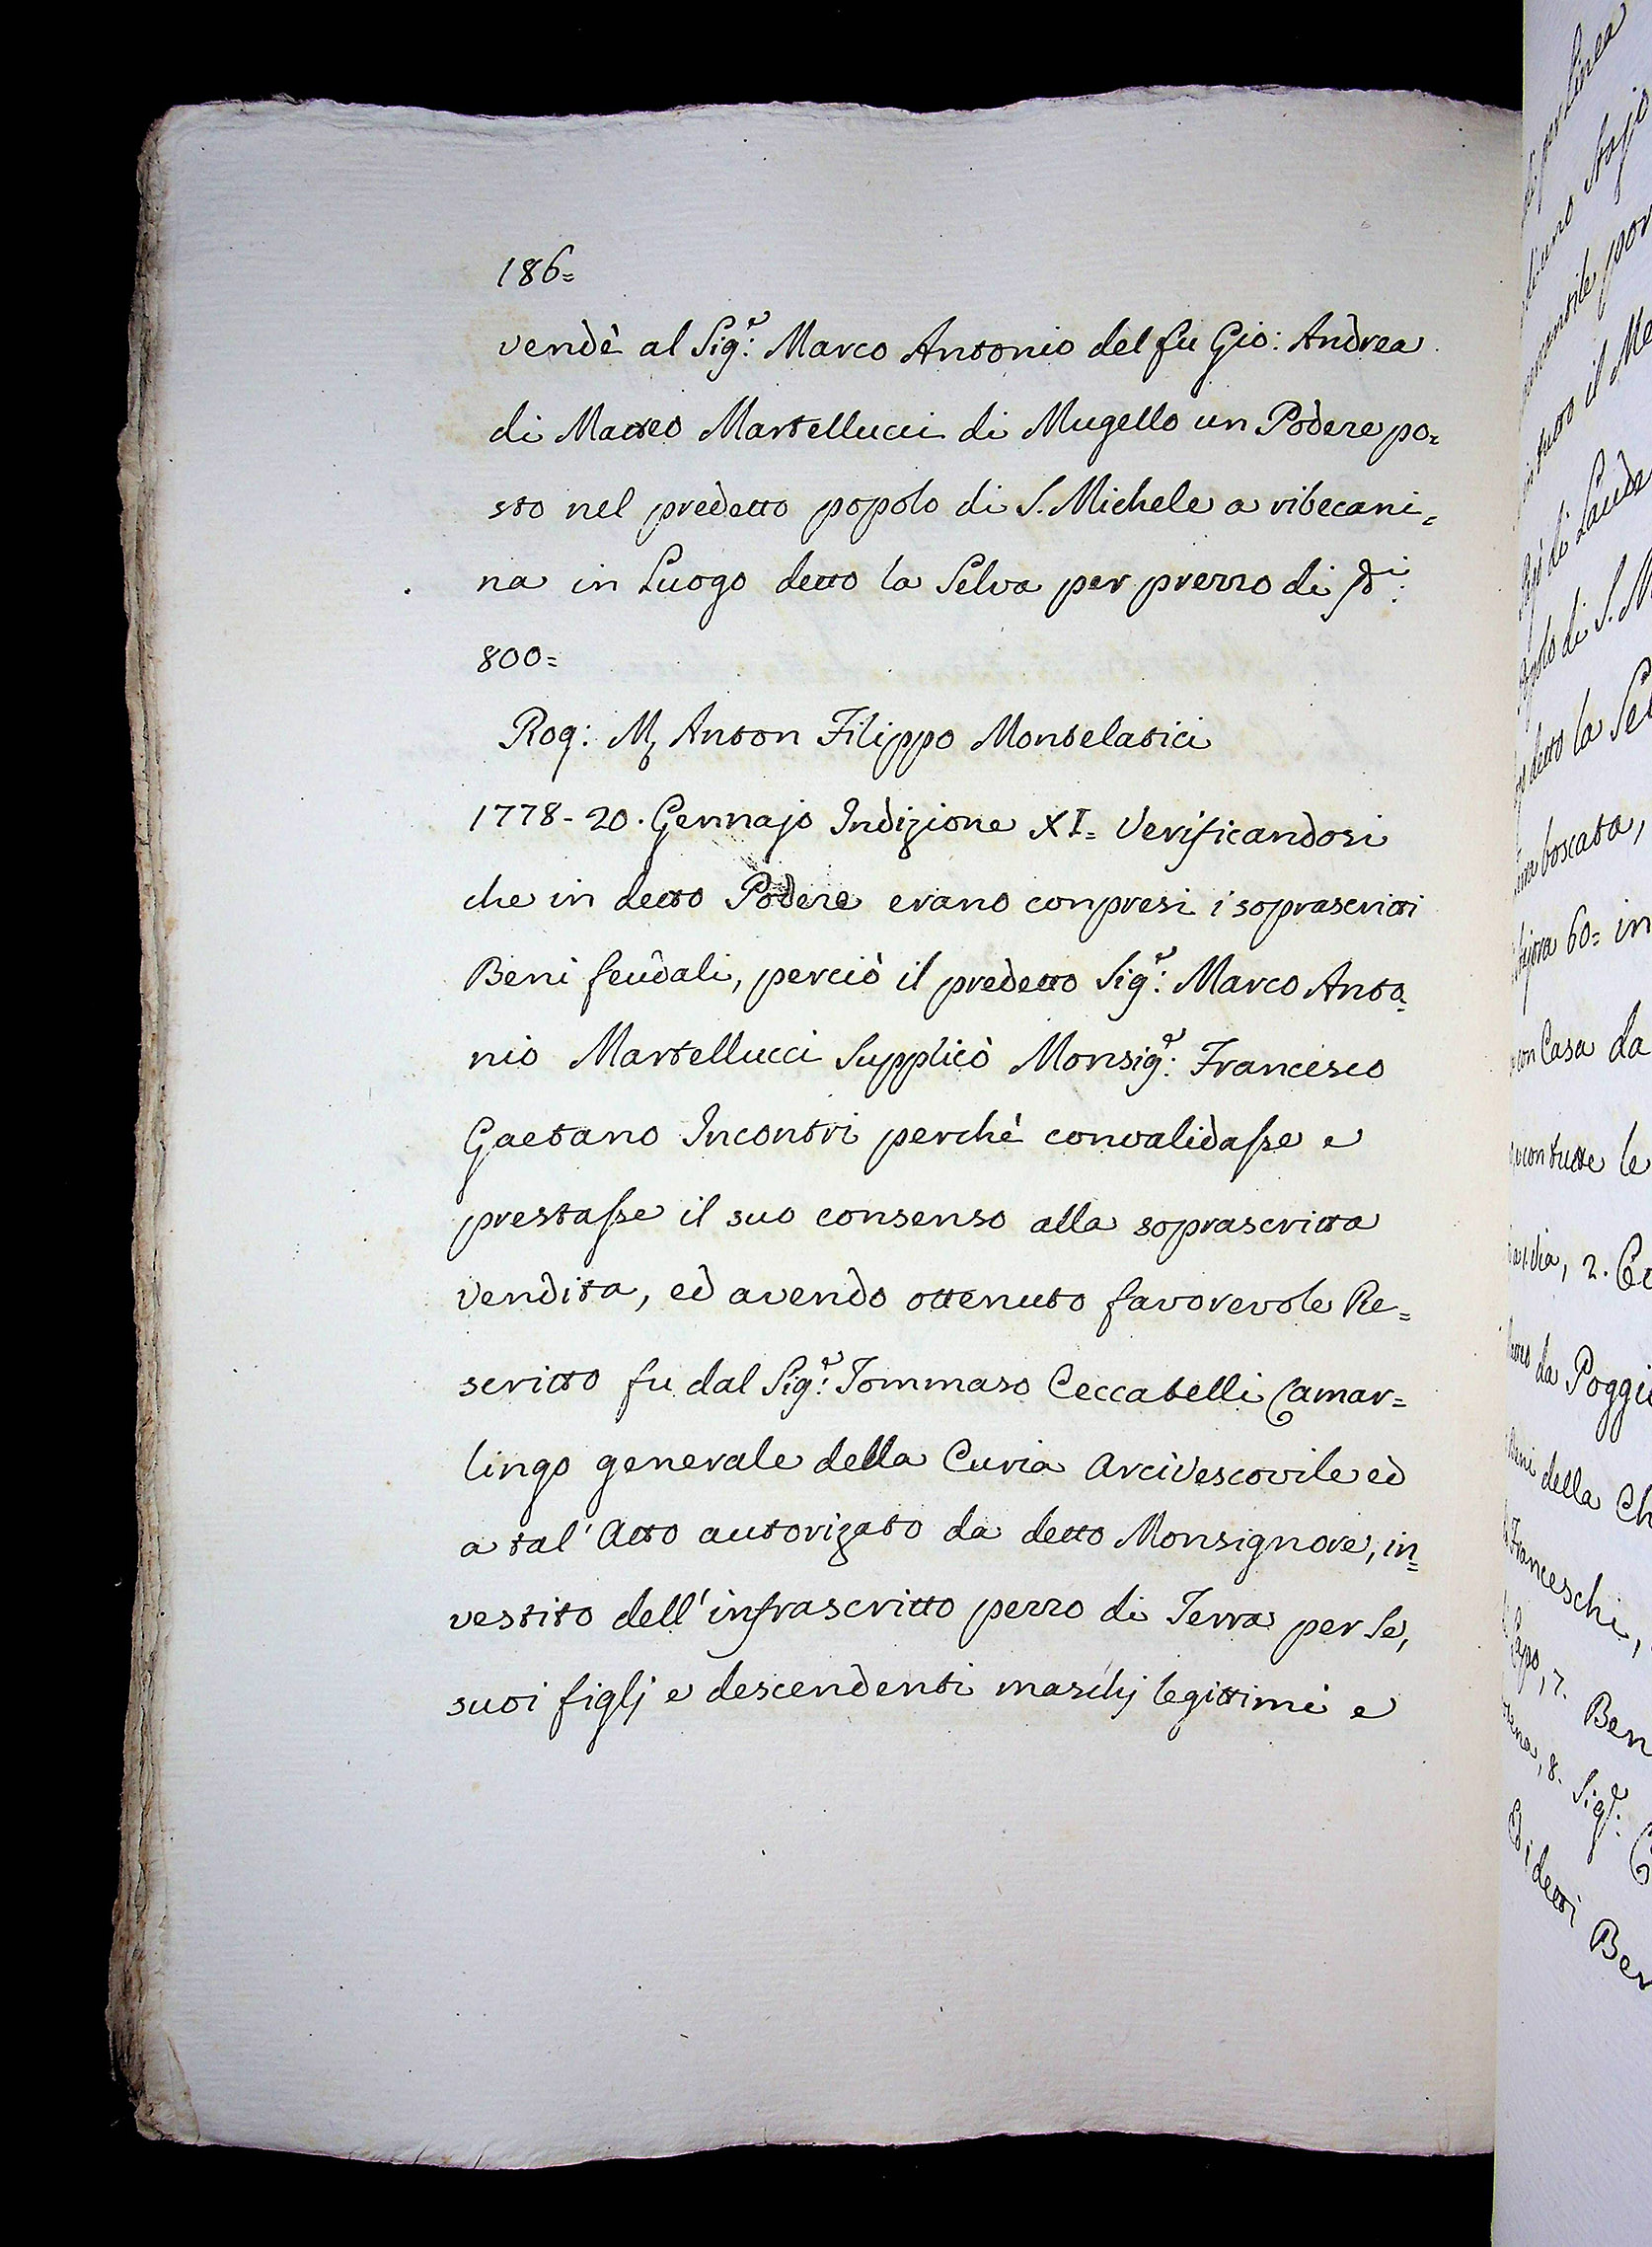 186=
vendè al Sig.e: Marco Antonio del fu Gio: Andrea
di Matteo Martellucci di Mugello un Podere po=
sto nel predetto popolo di S. Michele a ribecani=
na in Luogo detto la Selva per prezzo di
800=
Rog: Anton Filippo Montelatici
1778-20. Gennajo Indizione XI= Verificandosi
che in detto Podere erano conpresi i soprascritti
Beni feudali, perciò il predetto Sig.e: Marco Anto=
nio Martellucci Supplicò Monsig.e: Francesco
Gaetano Incontri perchè convalidasse e
prestasse il suo consenso alla soprascritta
vendita, ed avendo ottenuto favorevole Re=
scritto fu dal Sig.e: Tommaso Ceccatelli Camar=
lingo generale della Curia Arcivescovile ed
a tal' Atto autorizato da detto Monsignore, in=
vestito dell'infrascritto pezzo di Terra per Se,
suoi figlj e descendenti maschj legittimi e
stajo
il Me
di S. M
detto la Sel
boscata,
60= in
con Casa da
con tutte le
Via, 2.
da Poggi
della Ch
Franceschi,
7. Ben
8. Sig.e:
detti Ben